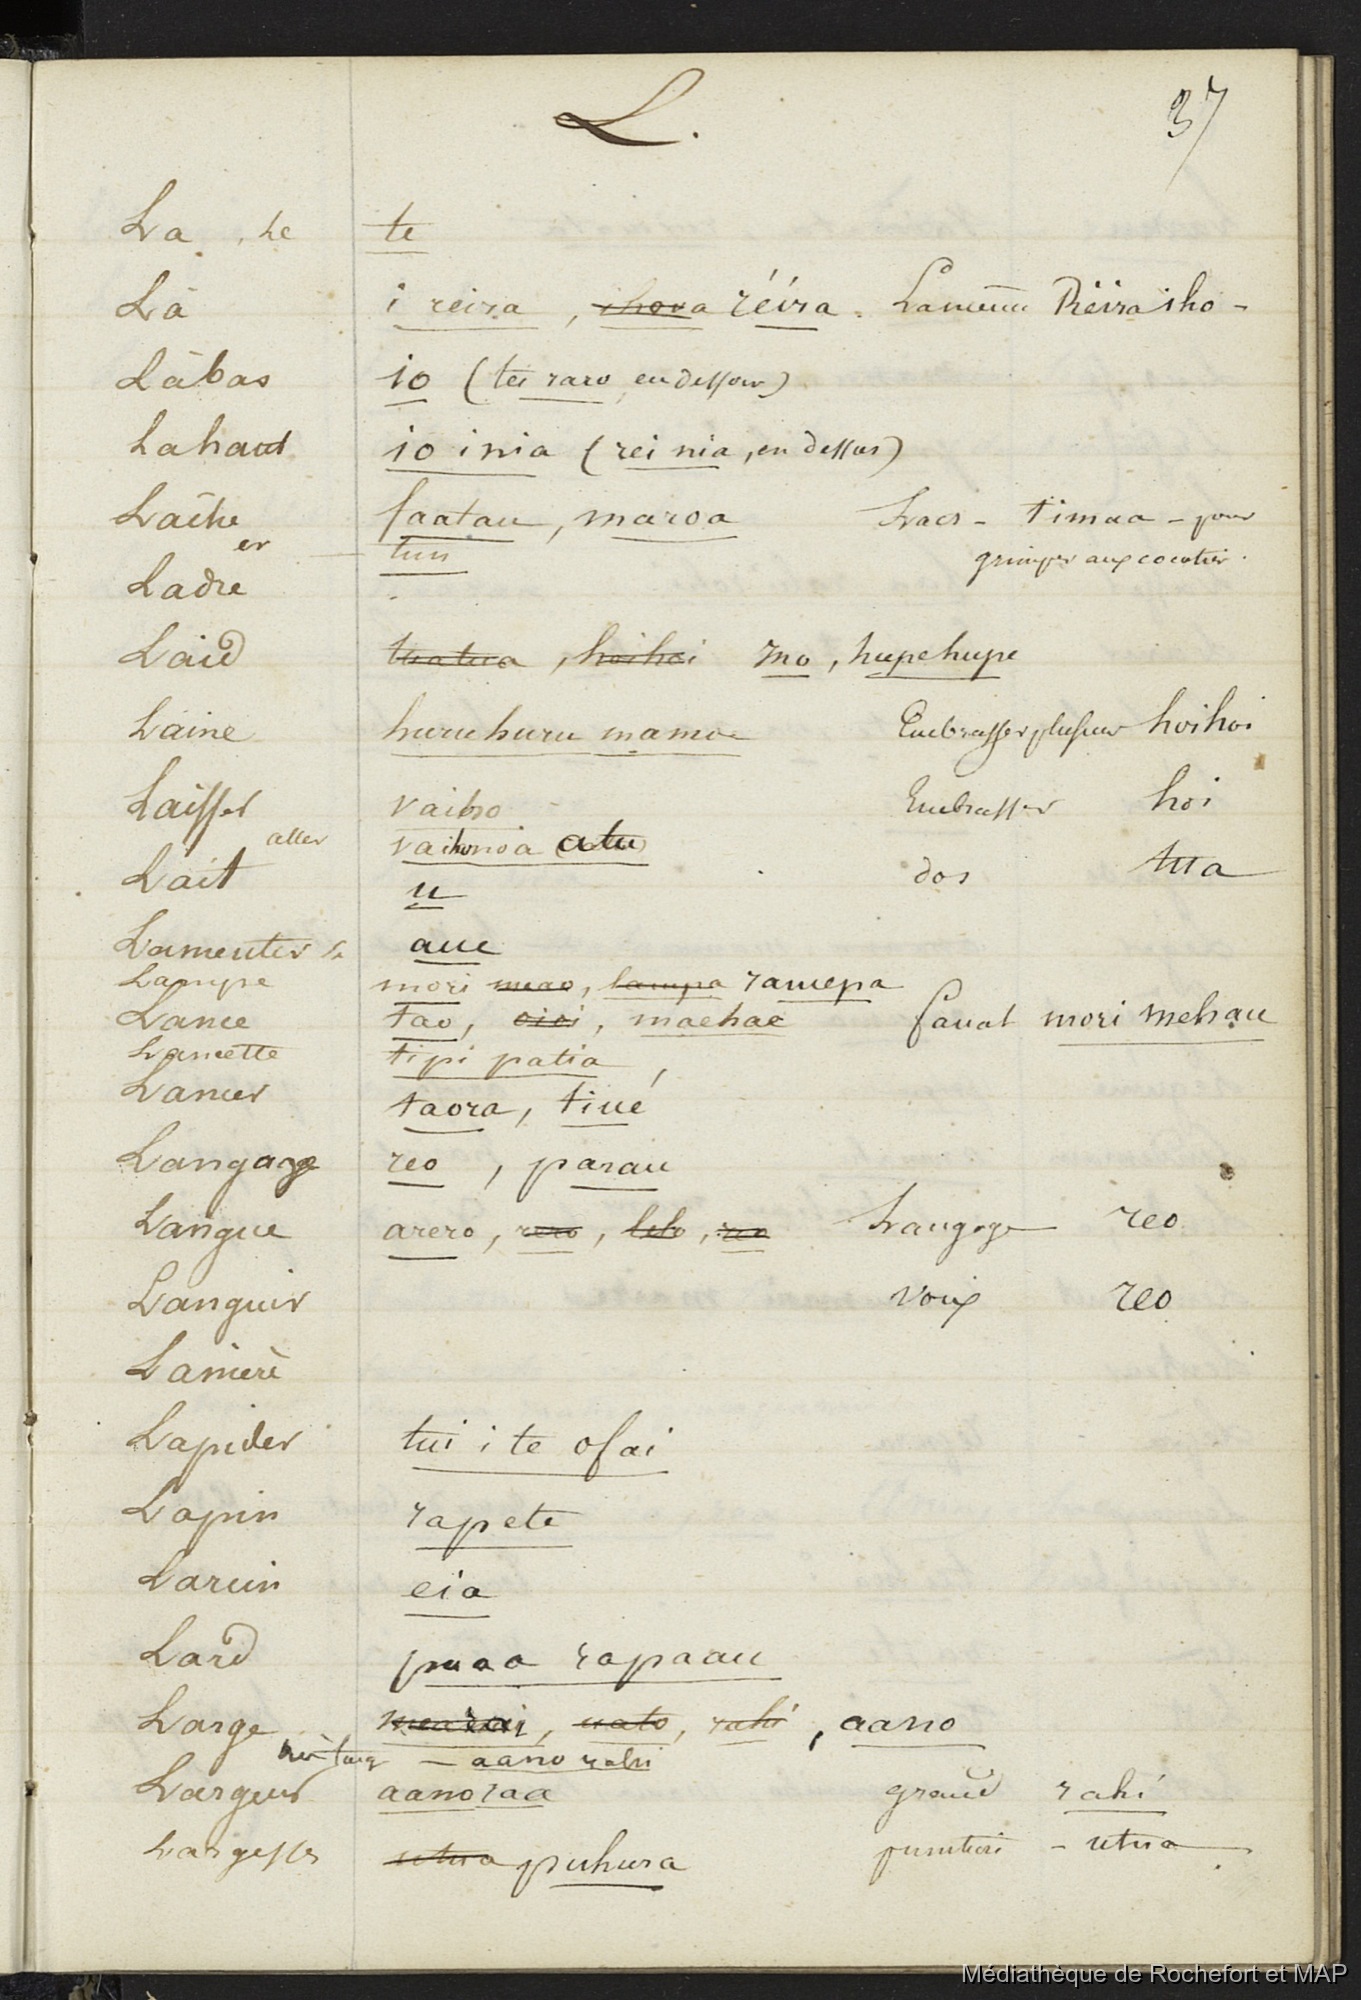 L.
37
La, Le te
Là i reira, ihora réira. Là même Réira iho -
Là bas io (tei raro, en dessous)
Là haut io i nia (rei nia, en dessus)
Lâche faatau, maroa Lacs - timaa - pour
er tuu grimper aux cocotiers.
Ladre
Laid tuatua, hoihoi ino, hupehupe
Laine huruhuru mamoe Embrasser plusieurs hoihoi
Laisser vaiho Embrasser hoi
aller vaihonoa atu
Lait u dos tua
Lamenter se aue
Lampe mori, lampa ramepa
Lance tao, oioi, maehae fanal mori mehau
Lancette tipi patia
Lancer taora, tiué
Langage reo, parau
Langue arero, rero, lelo, reo Langage reo
Languir voix reo
Lanière
Lapider tui i te ofai
Lapin rapete
Larcin eia
Lard puaa rapaau
Large, uato, rahi, aano
très large - aano rahi
Largeur aanoraa grand rahi
Largesses utua puhura punition - utua
Médiathèque de Rochefort et MAP